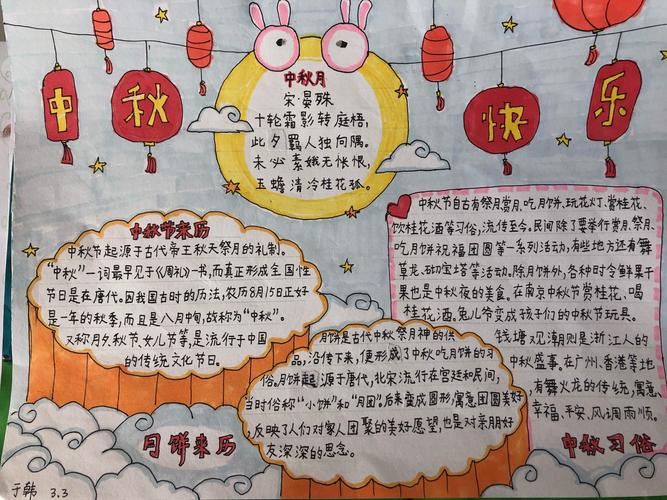 中秋快乐
中秋月
宋·晏殊
十轮霜影转庭梧,
此夕羁人独向隅。
未必素娥无怅恨,
玉蟾清冷桂花孤。
中秋节来历
中秋节起源于古代帝王秋天祭月的礼制。
“中秋”一词最早见于《周礼》一书,而真正形成全国性
节日是在唐代。因我国古时的历法,农历8月15日正好
是一年的秋季,而且是八月中旬,故称为“中秋”。
又称月夕、秋节、女儿节等,是流行于中国
的传统文化节日。
中秋节自古有祭月赏月、吃月饼、玩花灯、赏桂花、
饮桂花酒等习俗,流传至今。民间除了要举行赏月、祭月、
吃月饼祝福团圆等一系列活动,有些地方还有舞
草龙、砌宝塔等活动。除月饼外,各种时令鲜果干
果也是中秋夜的美食。在南京中秋节赏桂花、喝
桂花酒,兔儿爷变成孩们的中秋节玩具。
钱塘观潮则是浙江人的
中秋盛事。在广州、香港等地
有舞火龙的传统,寓意
幸福、平安、风调雨顺。
中秋习俗
月饼是古代中秋祭月神的供
品,沿传下来,便形成了中秋吃月饼的习
俗。月饼起源于唐代,北宋流行在宫廷和民间,
当时俗称“小饼”和“月团”。后来变成圆形,寓意团圆美好
反映了人们对家人团聚的美好愿望,也是对亲朋好
友深深的思念。
月饼来历
于韩 3.3